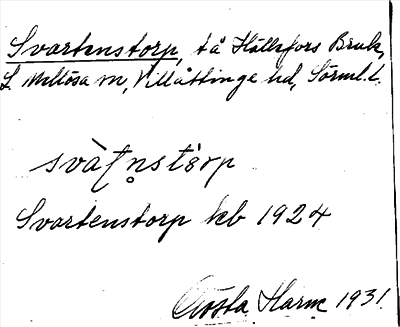 Svartenstorp, tå Hällefors Bruk,
L. Mellösa sn, Villåttinge hd, Sörml. l.
Svartenstorp kb 1924
Gösta Harm 1931.